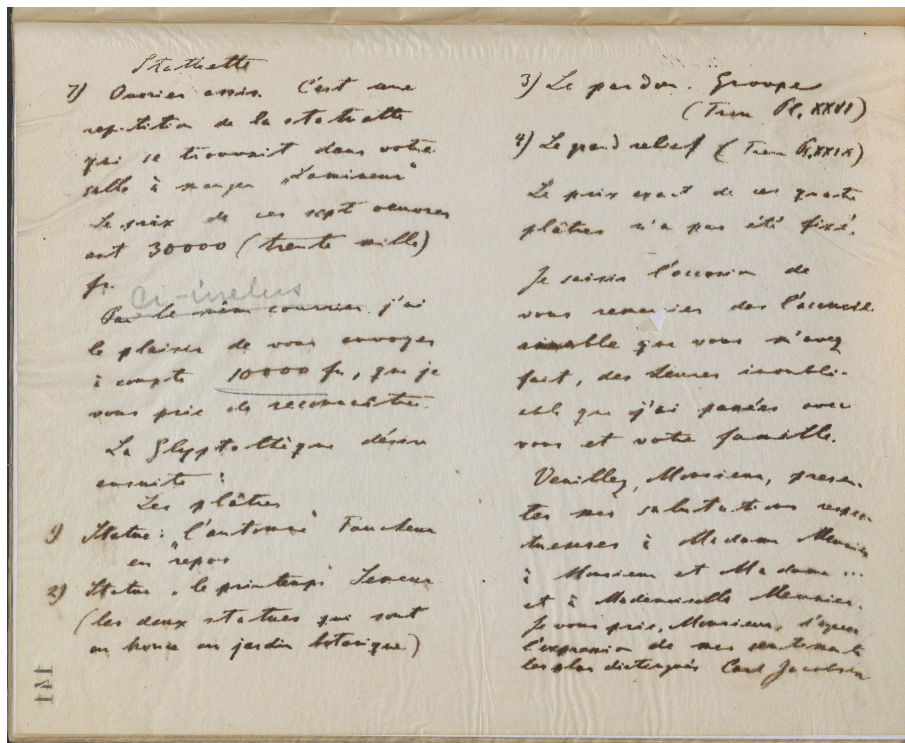 Statuette
7) Ouvrier assis. C'est une
repetition de la statuette
qui se trouvait dans votre
salle à manger „Lamineur"
Le prix de ces sept oeuvres
est 30000 (trente mille)
fr.
Ci-inclus
Par le même courrier j'ai
le plaisir de vous envoyer
à compte 10000 fr, que je
vous prie de reconnaître.
La Glyptothèque désire
ensuite:
Les plâtres
1) Statue: „l'automne" Faucheur
en repos
2) Statue „le printemps" Semeur
(les deux statues qui sont
en bronce au jardin botanique)
141
3) Le pardon. Groupe
(Treu Pl. XXVI)
4) Le grand relief (Treu Pl. XXIX)
Le prix exact de ces quatre
plâtres n'a pas été fixé.
Je saisis l'occasion de
vous remercier de l'accueil
aimable que vous m'avez
fait, des heures inoubli-
able que j'ai passées avec
vous et votre famille.
Veuillez, Monsieur, présen-
ter mes salutations respec-
tueuses à Madame Meunier
à Monsieur et Madame ...
et à Mademoiselle Meunier.
Je vous prie, Monsieur, d'agréer
l'expression de mes sentiments
les plus distingués Carl Jacobsen